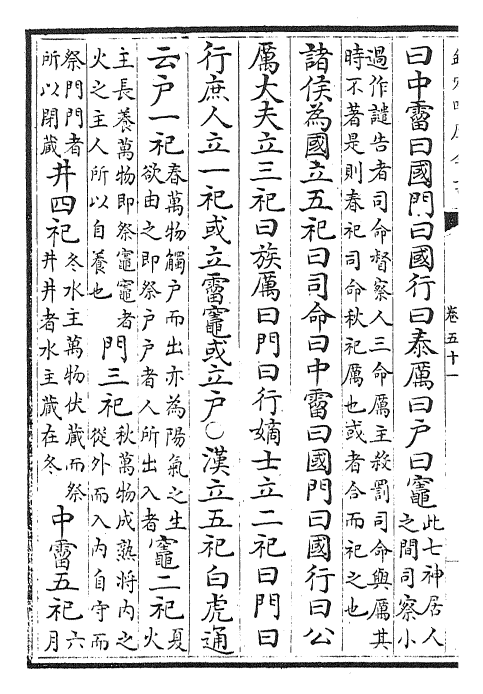 卷五十一
曰中霤曰國門曰國行曰泰厲曰户曰竈
此七神居人
之間司察小
過作譴告者司命督察人三命厲主殺罰司命與厲其
時不著是則春祀司命秋祀厲也或者合而祀之也
諸侯為國立五祀曰司命曰中霤曰國門曰國行曰公
厲大夫立三祀曰族厲曰門曰行嫡士立二祀曰門曰
行庶人立一祀或立霤竈或立户○漢立五祀白虎通
云户一祀
春萬物觸户而出亦為陽氣之生
欲由之即祭户户者人所出入者
竈二祀
夏
火
主長養萬物即祭竈竈者
火之主人所以自養也
門三祀
秋萬物成熟將内之
從外而入内自守而
祭門門者
所以閉藏
井四祀
冬水主萬物伏藏而祭
井井者水主藏在冬
中霤五祀
六
月